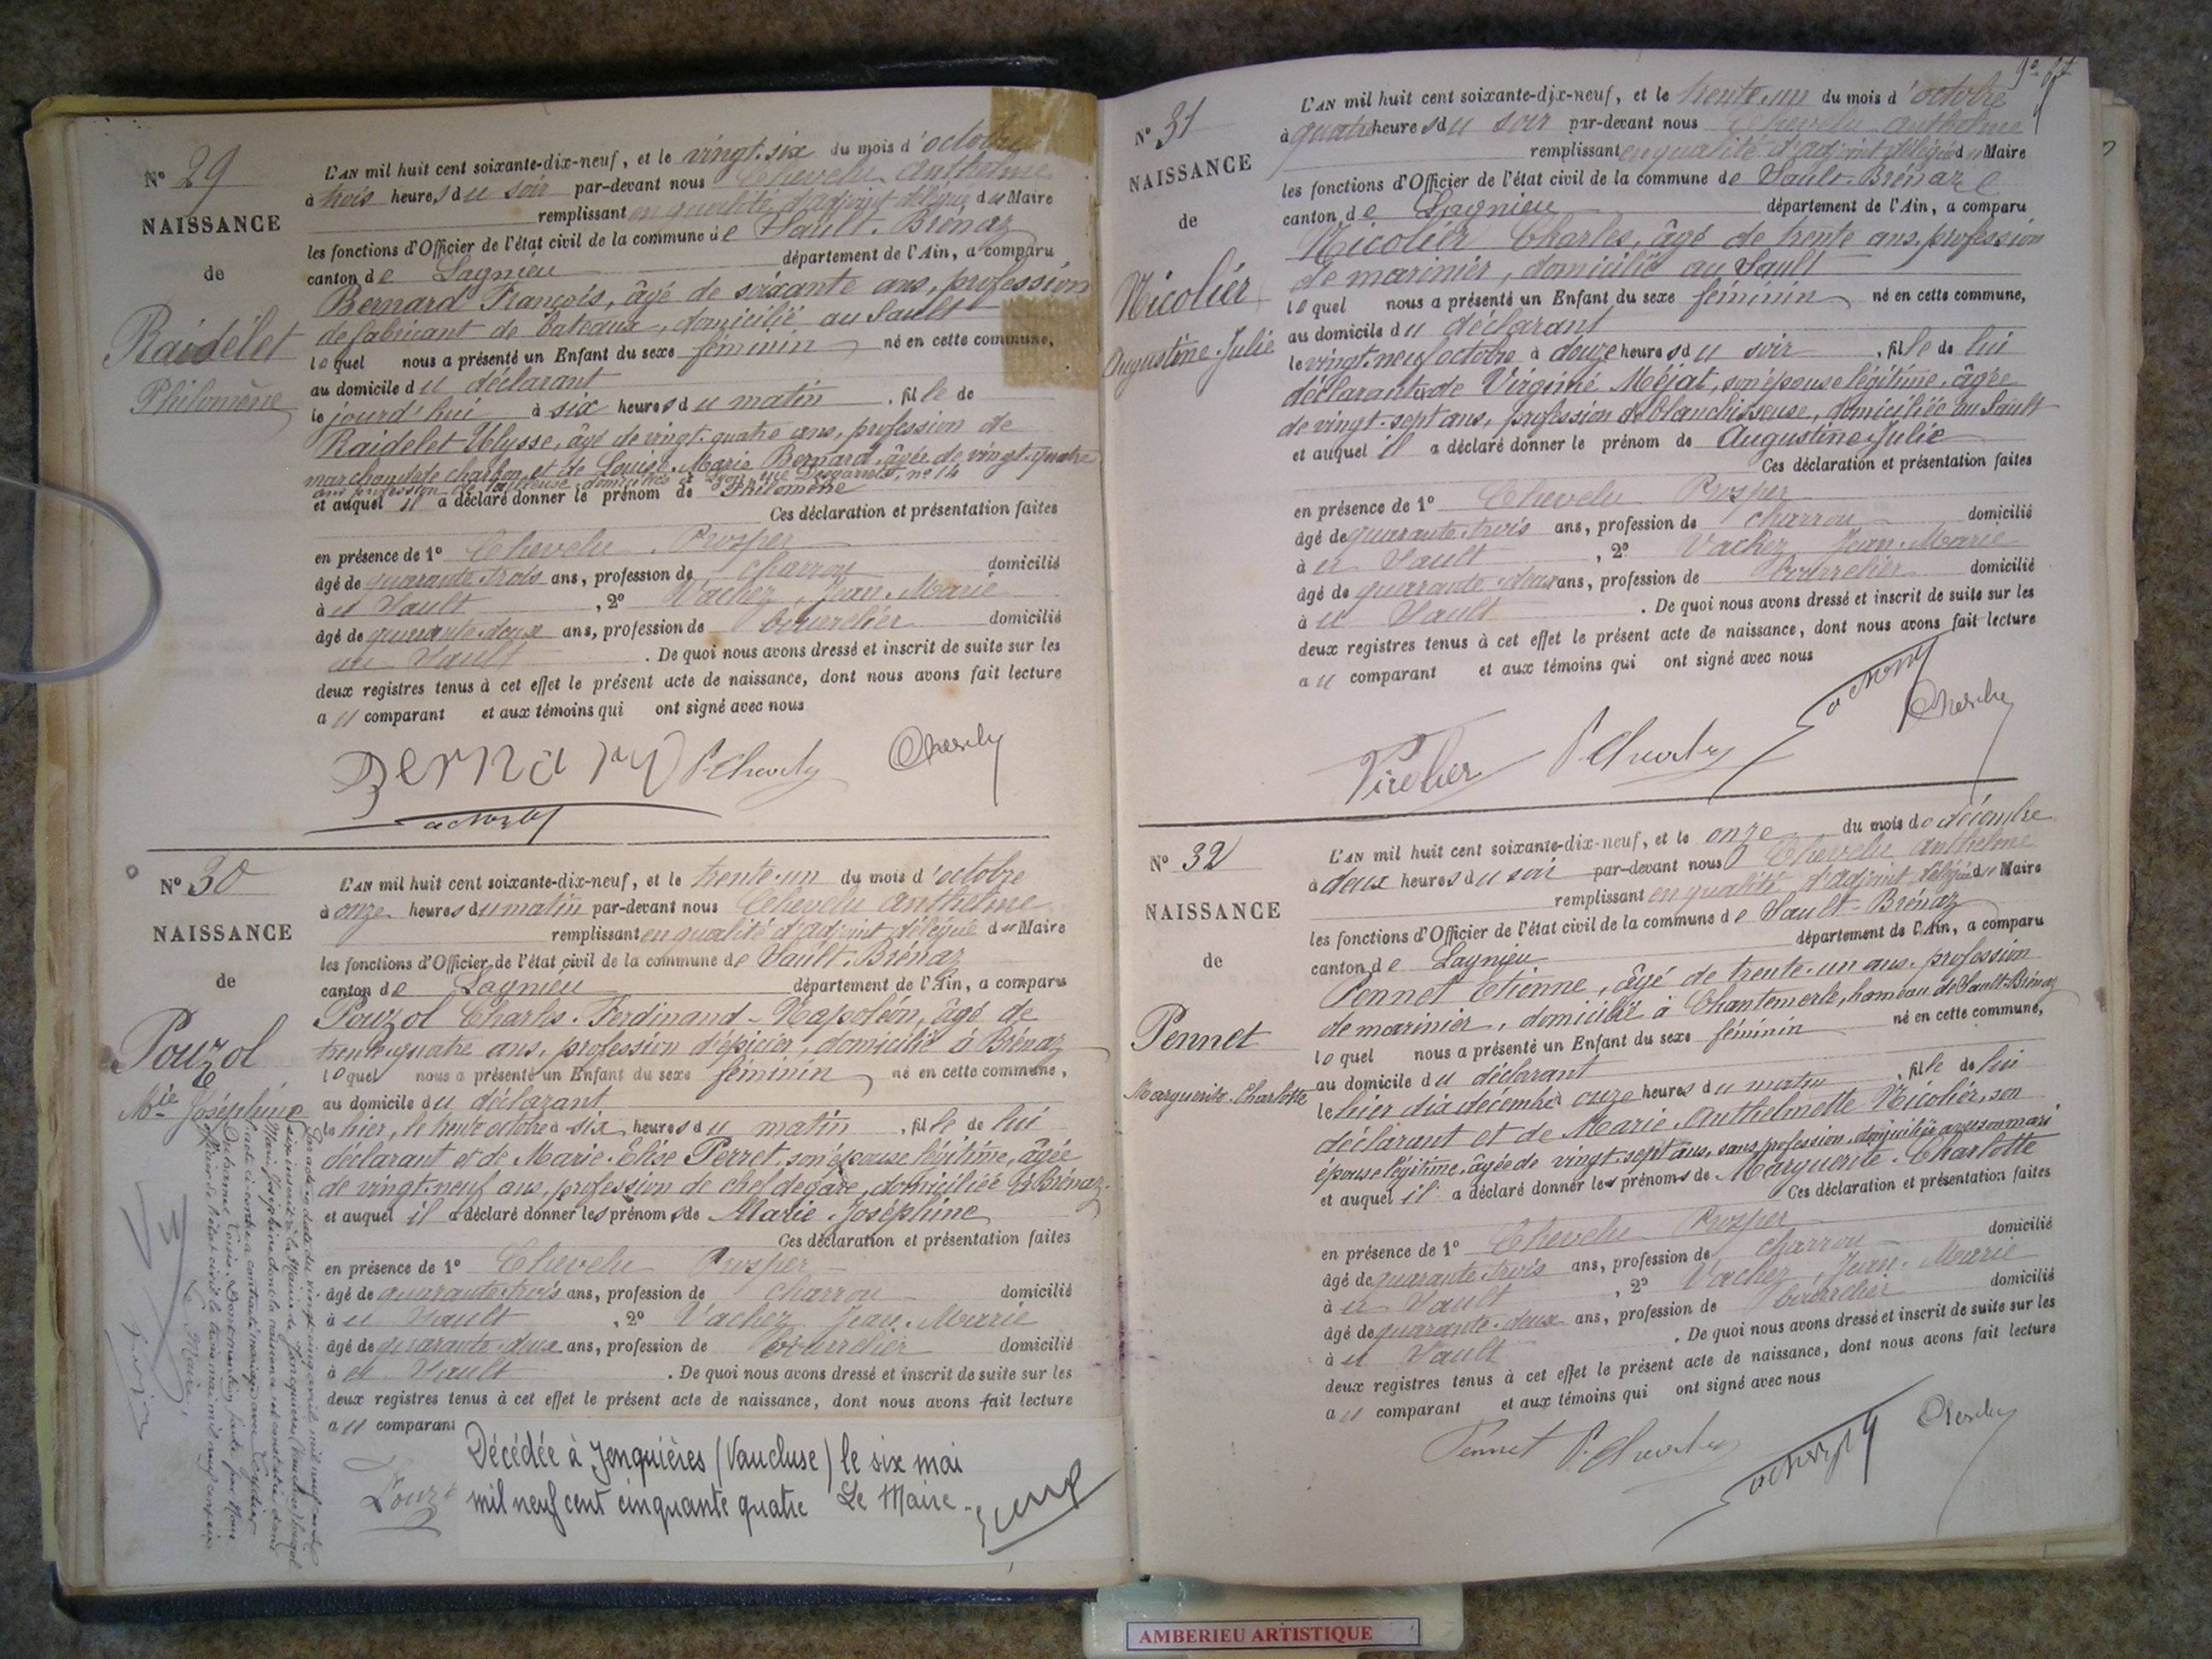 N° 29
NAISSANCE
de
Raidelet
Philomène
L'AN mil huit cent soixante-dix-neuf, et le vingt-six du mois d'octobre
à trois heures du soir par-devant nous Chevelu Anthelme
remplissant en qualité d'adjoint délégué du Maire
les fonctions d'Officier de l'état civil de la commune de Sault-Brénaz
canton de Lagnieu département de l'Ain, a comparu
Bernard François, âgé de soixante ans, profession
de fabricant de bateaux, domicilié au Sault
lequel nous a présenté un Enfant du sexe féminin né en cette commune,
au domicile du déclarant
le jourd'hui à six heures du matin, fille de
Raidelet Ulysse, âgé de vingt-quatre ans, profession de
marchand de charbon et de Louise Marie Bernard, âgée de vingt-quatre
ans profession de tailleuse domiciliés à Lyon, rue n° 14
et auquel il a déclaré donner le prénom de Philomène
Ces déclaration et présentation faites
en présence de 1° Chevelu Prosper
âgé de quarante-trois ans, profession de charron domicilié
à u Sault, 2° Vachez, Jean-Marie
âgé de quarante-deux ans, profession de bourrelier domicilié
au Sault. De quoi nous avons dressé et inscrit de suite sur les
deux registres tenus à cet effet le présent acte de naissance, dont nous avons fait lecture
au comparant et aux témoins qui ont signé avec nous
Bernard P. Chevelu Chevelu
N° 30
NAISSANCE
de
Pouzol
Mie Joséphine
L'AN mil huit cent soixante-dix-neuf, et le trente-un du mois d'octobre
à onze heures du matin par-devant nous Chevelu Anthelme
remplissant en qualité d'adjoint délégué du Maire
les fonctions d'Officier de l'état civil de la commune de Sault-Brénaz
canton de Lagnieu département de l'Ain, a comparu
Pouzol Charles-Ferdinand-Napoléon, âgé de
trente-quatre ans, profession d'épicier, domicilié à Brénaz
lequel nous a présenté un Enfant du sexe féminin né en cette commune,
au domicile du déclarant
le hier, le trente octobre à six heures du matin, fille de lui
déclarant et de Marie-Elise Perret, son épouse légitime, âgée
de vingt-neuf ans, profession de chef de gare, domiciliée à Brénaz.
et auquel il a déclaré donner les prénoms de Marie-Joséphine
Ces déclaration et présentation faites
en présence de 1° Chevelu Prosper
âgé de quarante-trois ans, profession de charron domicilié
à u Sault, 2° Vachez Jean-Marie
âgé de quarante-deux ans, profession de bourrelier domicilié
à u Sault. De quoi nous avons dressé et inscrit de suite sur les
deux registres tenus à cet effet le présent acte de naissance, dont nous avons fait lecture
au comparant
Pouzol
Décédée à Jonquières (Vaucluse) le six mai
mil neuf cent cinquante quatre Le Maire
Par acte en date du vingt cinq avril mil neuf cent
six inscrit à la Mairie de Jonquières (Vaucluse)
Marie Joséphine dont la naissance est constatée dans
l'acte ci-contre a contracté mariage avec
Le Maire,
Vu
N° 31
NAISSANCE
de
Nicolier
Augustine-Julie
L'AN mil huit cent soixante-dix-neuf, et le trente-un du mois d'octobre
à quatre heures du soir par-devant nous Chevelu Anthelme
remplissant en qualité d'adjoint délégué du Maire
les fonctions d'Officier de l'état civil de la commune de Sault-Brénaz
canton de Lagnieu département de l'Ain, a comparu
Nicolier Charles, âgé de trente ans, profession
de marinier, domicilié au Sault
lequel nous a présenté un Enfant du sexe féminin né en cette commune,
au domicile du déclarant
le vingt-neuf octobre à douze heures du soir, fille de lui
déclarant et de Virginie Méjat, son épouse légitime, âgée
de vingt-sept ans, profession de blanchisseuse, domiciliée au Sault
et auquel il a déclaré donner le prénom de Augustine-Julie
Ces déclaration et présentation faites
en présence de 1° Chevelu Prosper
âgé de quarante-trois ans, profession de charron domicilié
à u Sault, 2° Vachez Jean-Marie
âgé de quarante-deux ans, profession de bourrelier domicilié
à u Sault. De quoi nous avons dressé et inscrit de suite sur les
deux registres tenus à cet effet le présent acte de naissance, dont nous avons fait lecture
au comparant et aux témoins qui ont signé avec nous
P. Chevelu Chevelu
N° 32
NAISSANCE
de
Pennet
Marguerite-Charlotte
L'AN mil huit cent soixante-dix-neuf, et le onze du mois de décembre
à deux heures du soir par-devant nous Chevelu Anthelme
remplissant en qualité d'adjoint délégué du Maire
les fonctions d'Officier de l'état civil de la commune de Sault-Brénaz
canton de Lagnieu département de l'Ain, a comparu
Pennet Etienne, âgé de trente-un ans, profession
de marinier, domicilié à Chantemerle, hameau de Sault-Brénaz
lequel nous a présenté un Enfant du sexe féminin né en cette commune,
au domicile du déclarant
le hier dix décembre à onze heures du matin, fille de lui
déclarant et de Marie-Anthelmette Nicolier, son
épouse légitime, âgée de vingt-sept ans, sans profession, domiciliée avec son mari
et auquel il a déclaré donner les prénoms de Marguerite-Charlotte
Ces déclaration et présentation faites
en présence de 1° Chevelu Prosper
âgé de quarante-trois ans, profession de charron domicilié
à u Sault, 2° Vachez, Jean-Marie
âgé de quarante-deux ans, profession de bourrelier domicilié
à u Sault. De quoi nous avons dressé et inscrit de suite sur les
deux registres tenus à cet effet le présent acte de naissance, dont nous avons fait lecture
au comparant et aux témoins qui ont signé avec nous
Pennet P. Chevelu Chevelu
AMBERIEU ARTISTIQUE